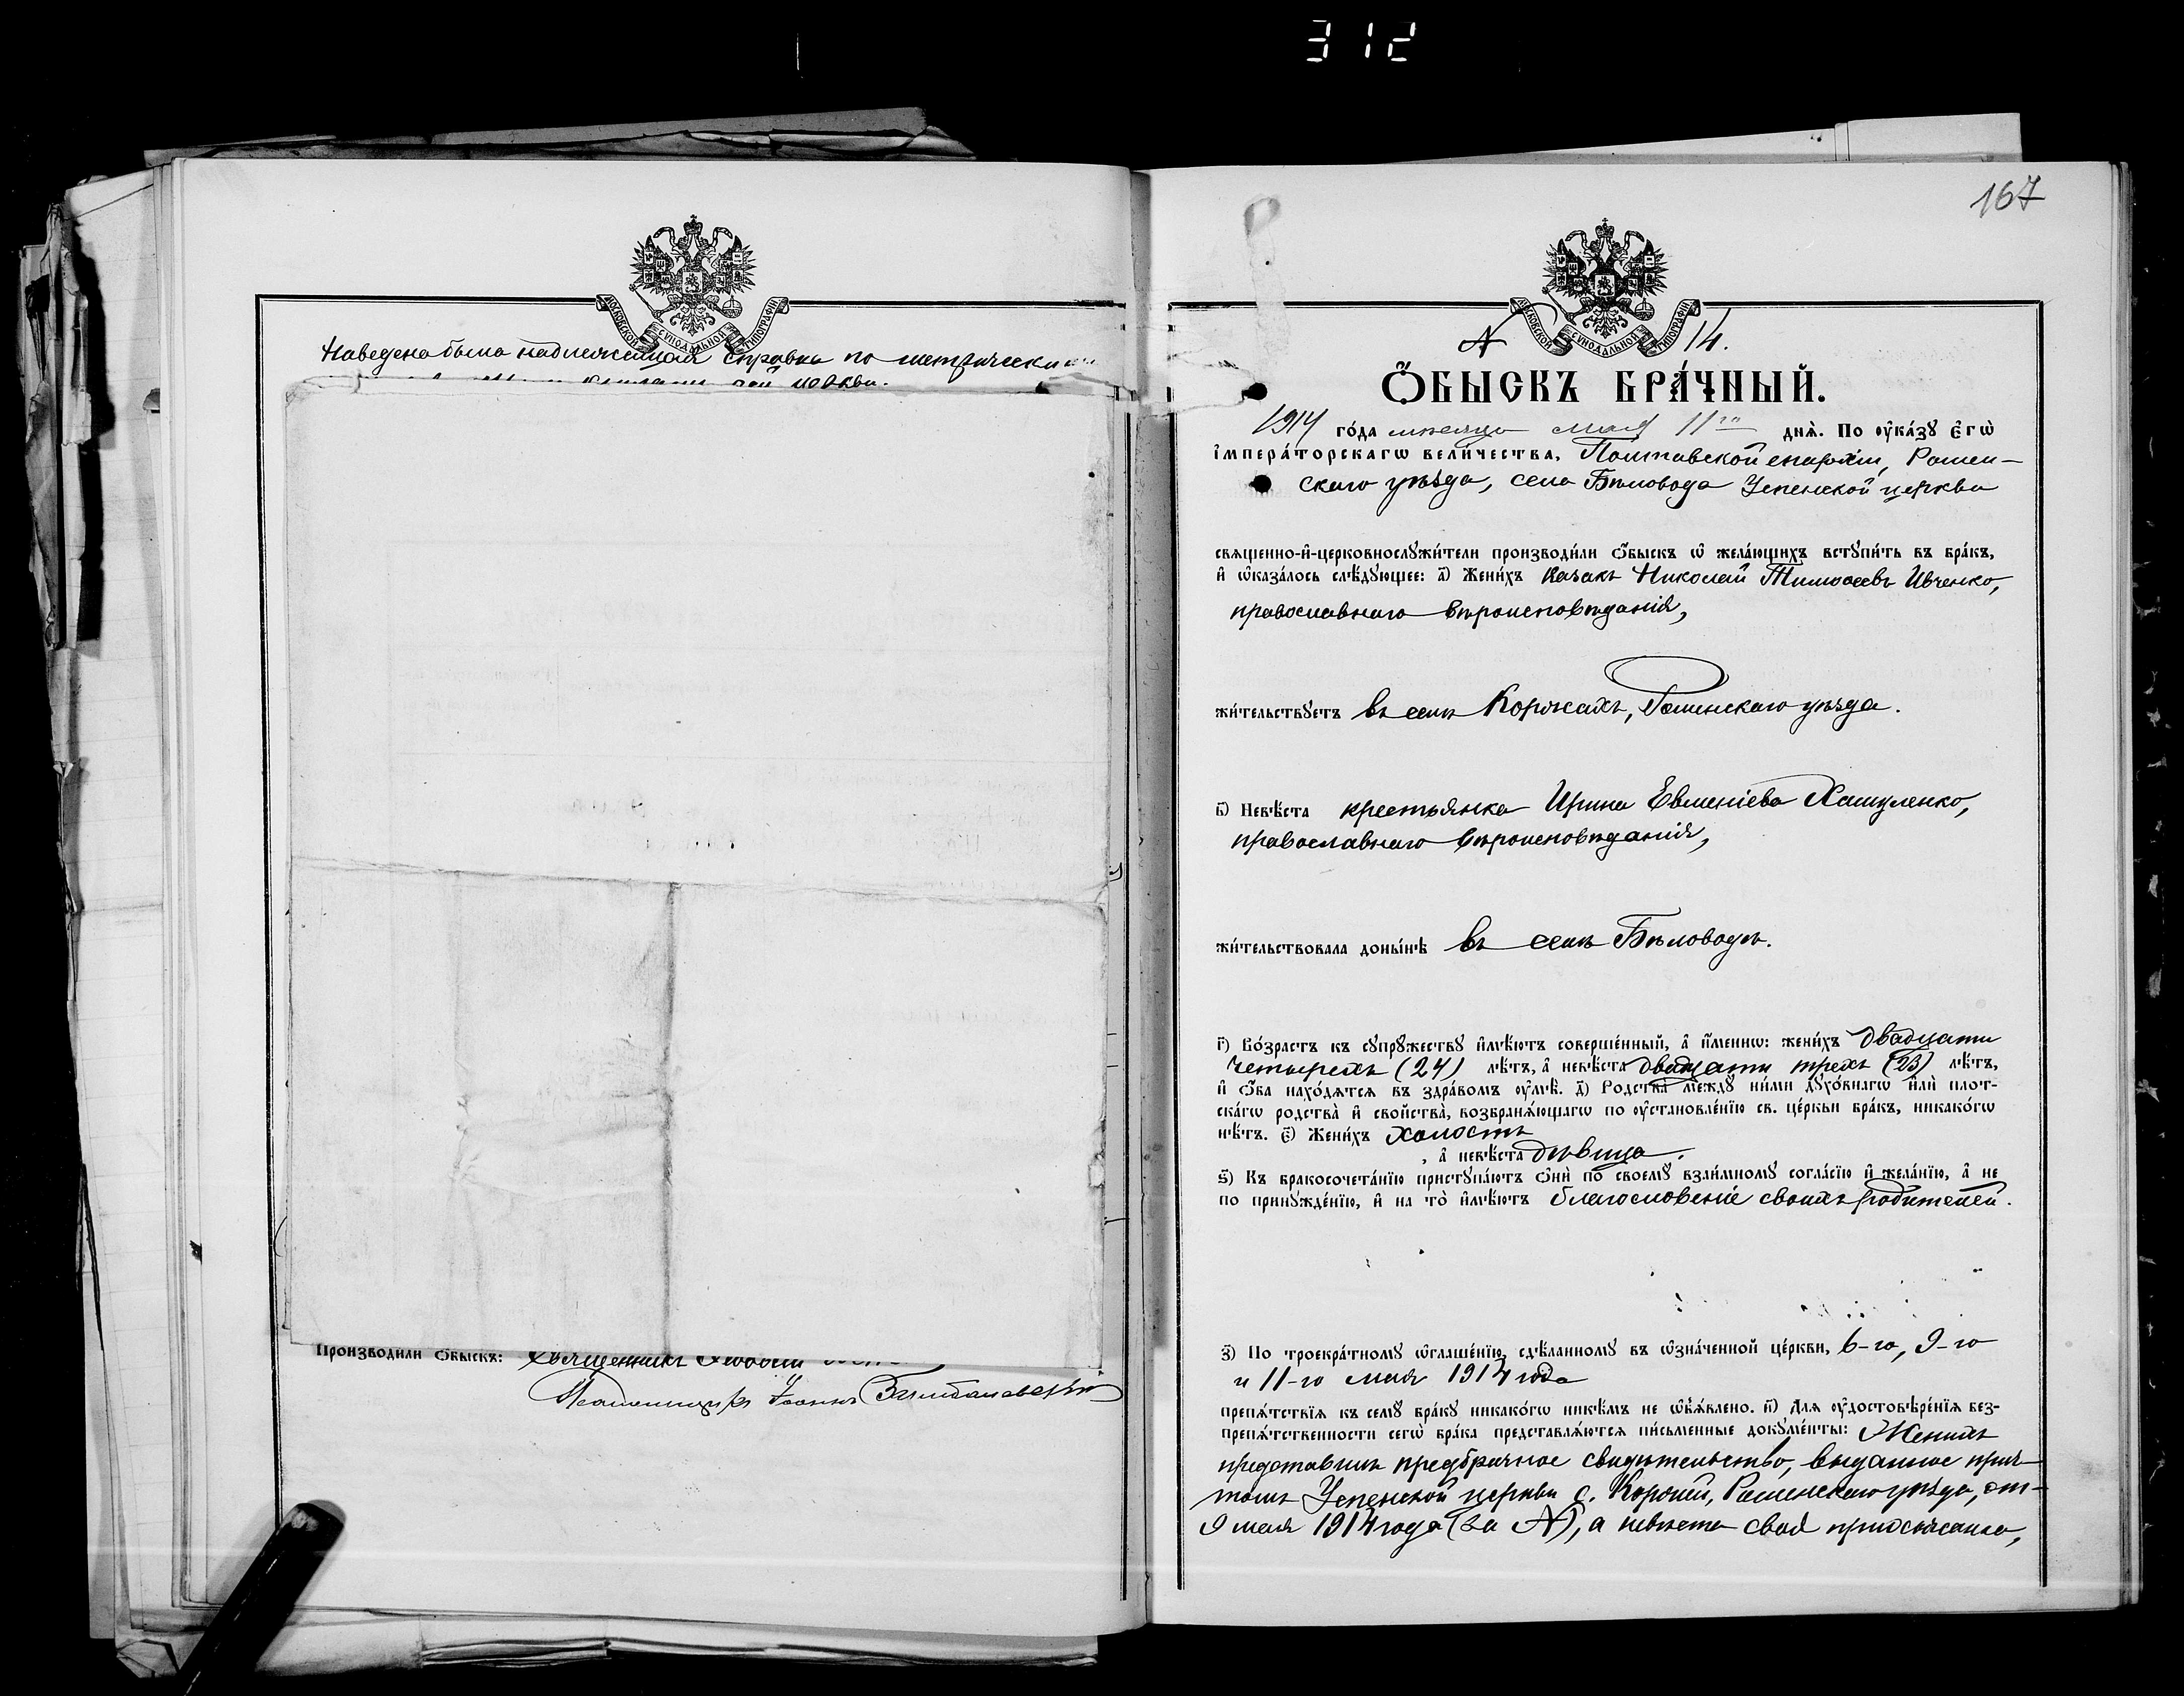 312
МОСКОВСКОЙ СѴНОДАЛЬНОЙ ТИПОГРАФІИ
Наведена была надлежащая справка по метрическимъ
церкви.
Производили ѻ҆быскъ: Священникъ
Псаломщикъ Іоаннъ
167
МОСКОВСКОЙ СѴНОДАЛЬНОЙ ТИПОГРАФІИ
№ 14.
Ѻ҆БЫСКЪ БРА́ЧНЫЙ.
1914 го́да мѣсяца мая 11го днѧ̀. По ᲂу҆ка́зꙋ Є҆гѡ̀
І҆мпера́торскагѡ вели́чества, Полтавской епархіи, Ромен-
скаго уѣзда, села Бѣловода Успенской церкви
свѧщенно-и҆-церковнослꙋжи́тели производи́ли ѻ҆быскъ ѡ҆ жела́ющихъ встꙋпи́ть въ бра́къ,
и҆ ѡ҆каза́лось слѣ́дꙋющее: а҃) Жени́хъ казакъ Николай Тимоѳеевъ Ивченко,
православнаго вѣроисповѣданія,
жи́тельствꙋетъ въ селѣ Коржахъ, Роменскаго уѣзда.
в҃) Невѣ́ста крестьянка Ирина Евменіева Хашуленко,
православнаго вѣроисповѣданія,
жи́тельствовала доны́нѣ въ селѣ Бѣловодѣ.
г҃) Во́зрастъ къ сꙋпрꙋ́жествꙋ и҆мѣ́ютъ соверше́нный, а҆ и҆́меннѡ: жени́хъ двадцати
четырехъ (24) лѣ́тъ, а҆ невѣ́ста двадцати трехъ (23) лѣ́тъ,
и҆ ѻ҆́ба нахо́дѧтсѧ въ здра́вомъ ᲂу҆мѣ̀. д҃) Родства̀ междꙋ̀ ни́ми дꙋхо́внагѡ и҆лѝ плот-
ска́гѡ родства̀ и҆ свойства̀, возбранѧ́ющагѡ по ᲂу҆становле́нїю св. це́ркви бра́къ, никако́гѡ
нѣ́тъ. є҃) Жени́хъ холостъ
, а҆ невѣ́ста дѣвица.
ѕ҃) Къ бракосочета́нїю пристꙋпа́ютъ ѻ҆нѝ по своемꙋ̀ взаи́мномꙋ согла́сїю и҆ жела́нїю, а҆ не
по принꙋжде́нїю, и҆ на то̀ и҆мѣ́ютъ благословеніе своихъ родителей.
з҃) По троекра́тномꙋ ѡ҆глаше́нїю, сдѣ́ланномꙋ въ ѡ҆зна́ченной це́ркви, 6-го, 9-го
и 11-го мая 1914 года
препѧ́тствїѧ къ семꙋ̀ бра́кꙋ никако́гѡ никѣ́мъ не ѡ҆б̾ѧ́влено. и҃) Длѧ ᲂу҆достовѣре́нїѧ без-
препѧ́тственности сегѡ̀ бра́ка представлѧ́ютсѧ пи́сьменные докꙋме́нты: Женихъ
представилъ предбрачное свидѣтельство, выданное прич-
томъ Успенской церкви с. Коржей, Роменскаго уѣзда, отъ
9 мая 1914 года (за №), а невѣста своя прихожанка,